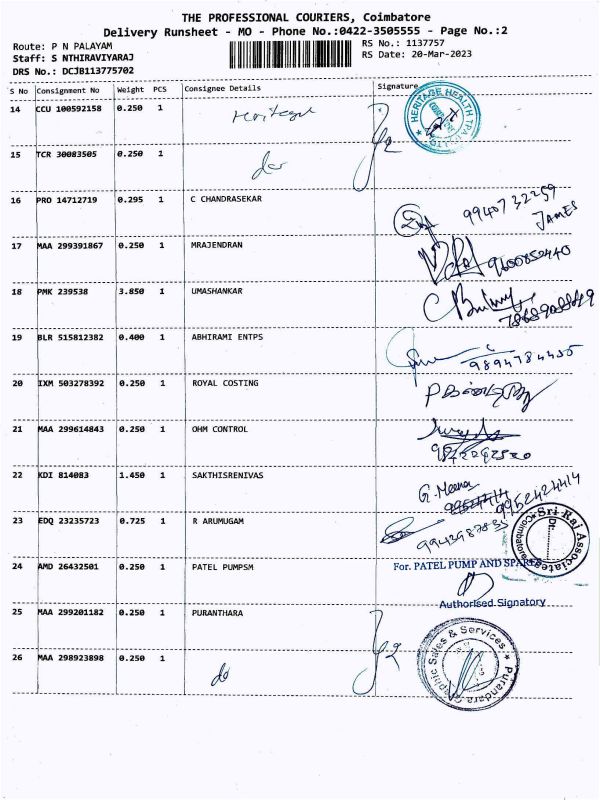 THE PROFESSIONAL COURIERS, Coimbatore
Delivery Runsheet - MO - Phone No.:0422-3505555 - Page No.:2
Route: P N PALAYAM
RS No.: 1137757
Staff: S NTHIRAVIYARAJ
RS Date: 20-Mar-2023
DRS No.: DCJB113775702
S No Consignment No Weight PCS Consignee Details Signature
14 CCU 100592158 0.250 1 Heritage
HERITAGE HEALTH TPA
15 TCR 30083505 0.250 1 do
16 PRO 14712719 0.295 1 C CHANDRASEKAR
9940732259
JAMES
17 MAA 299391867 0.250 1 MRAJENDRAN
9600852440
18 PMK 239538 3.850 1 UMASHANKAR
19 BLR 515812382 0.400 1 ABHIRAMI ENTPS
9894784455
20 IXM 503278392 0.250 1 ROYAL COSTING
21 MAA 299614843 0.250 1 OHM CONTROL
22 KDI 814083 1.450 1 SAKTHISRENIVAS
G. Meena
9952424414
23 EDQ 23235723 0.725 1 R ARUMUGAM
Sri Raj Associates
Coimbatore
Dt:
24 AMD 26432501 0.250 1 PATEL PUMPSM
For. PATEL PUMP AND SPARES
Authorised Signatory
25 MAA 299201182 0.250 1 PURANTHARA
26 MAA 298923898 0.250 1 do
Purandara Graphic Sales & Services